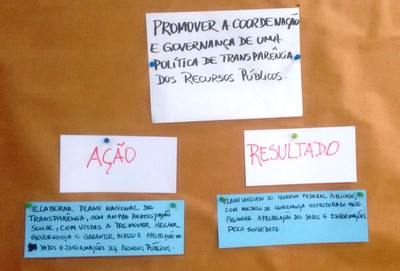 PROMOVER A COORDENAÇÃO
E GOVERNANÇA DE UMA
POLÍTICA DE TRANSPARÊNCIA
DOS RECURSOS PÚBLICOS.
AÇÃO
RESULTADO
ELABORAR PLANO NACIONAL DE
TRANSPARÊNCIA, COM AMPLA PARTICIPAÇÃO
SOCIAL, COM VISTAS A PROMOVER MELHOR
GOVERNANÇA E GARANTIR ACESSO E
DADOS E INFORMAÇÕES DOS RECURSOS PÚBLICOS.
PLANO DO GOVERNO FEDERAL PUBLICADO,
COM MODELO DE GOVERNANÇA ESTRUTURADO PARA
PROMOVER APROPRIAÇÃO DOS DADOS E INFORMAÇÕES
PELA SOCIEDADE.